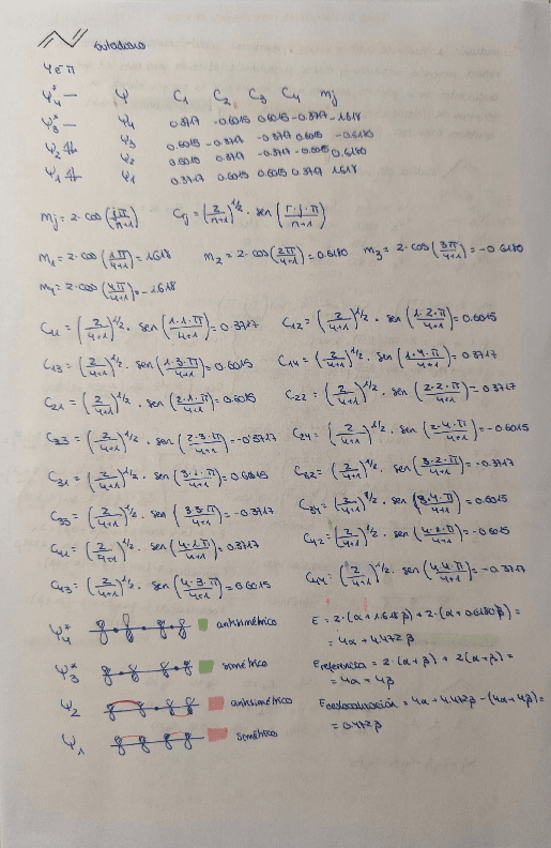 butadieno
4 e⁻ π
Ψ₄* — Ψ C₁ C₂ C₃ C₄ mj
Ψ₃* — Ψ₄ 0.3717 -0.6015 0.6015 -0.3717 -1.618
Ψ₂ Ψ₃ 0.6015 -0.3717 -0.3717 0.6015 -0.6180
Ψ₂ 0.6015 0.3717 -0.3717 -0.6015 0.6180
Ψ₁ Ψ₁ 0.3717 0.6015 0.6015 0.3717 1.618
mj = 2·cos(jπ/n+1) Crj = (2/n+1)^1/2 · sen(r·j·π/n+1)
m₁ = 2·cos(1π/4+1) = 1.618 m₂ = 2·cos(2π/4+1) = 0.6180 m₃ = 2·cos(3π/4+1) = -0.6180
m₄ = 2·cos(4π/4+1) = -1.618
C₁₁ = (2/4+1)^1/2 · sen(1·1·π/4+1) = 0.3717 C₁₂ = (2/4+1)^1/2 · sen(1·2·π/4+1) = 0.6015
C₁₃ = (2/4+1)^1/2 · sen(1·3·π/4+1) = 0.6015 C₁₄ = (2/4+1)^1/2 · sen(1·4·π/4+1) = 0.3717
C₂₁ = (2/4+1)^1/2 · sen(2·1·π/4+1) = 0.6015 C₂₂ = (2/4+1)^1/2 · sen(2·2·π/4+1) = 0.3717
C₂₃ = (2/4+1)^1/2 · sen(2·3·π/4+1) = -0.3717 C₂₄ = (2/4+1)^1/2 · sen(2·4·π/4+1) = -0.6015
C₃₁ = (2/4+1)^1/2 · sen(3·1·π/4+1) = 0.6015 C₃₂ = (2/4+1)^1/2 · sen(3·2·π/4+1) = -0.3717
C₃₃ = (2/4+1)^1/2 · sen(3·3·π/4+1) = -0.3717 C₃₄ = (2/4+1)^1/2 · sen(3·4·π/4+1) = 0.6015
C₄₁ = (2/4+1)^1/2 · sen(4·1·π/4+1) = 0.3717 C₄₂ = (2/4+1)^1/2 · sen(4·2·π/4+1) = -0.6015
C₄₃ = (2/4+1)^1/2 · sen(4·3·π/4+1) = 0.6015 C₄₄ = (2/4+1)^1/2 · sen(4·4·π/4+1) = -0.3717
Ψ₄* antisimétrico E = 2·(α+1.618β) + 2·(α+0.6180β) =
= 4α + 4.472β
Ψ₃* simétrico Ereferencia = 2·(α+β) + 2(α+β) =
= 4α + 4β
Ψ₂ antisimétrico Edeslocalización = 4α + 4.472β - (4α+4β) =
= 0.472β
Ψ₁ simétrico